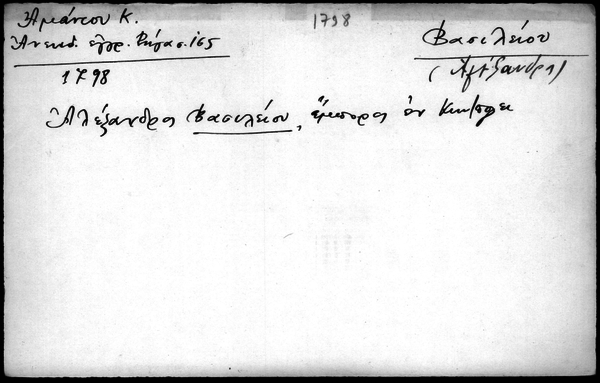 Ἀμάντου Κ.
Ἀνεκδ. ἔγγρ. Ρήγα σ. 165
1798
1798
Βασιλείου
(Ἀλέξανδρος)
Ἀλέξανδρος Βασιλείου, ἔμπορος ἐν Κων/πόλει